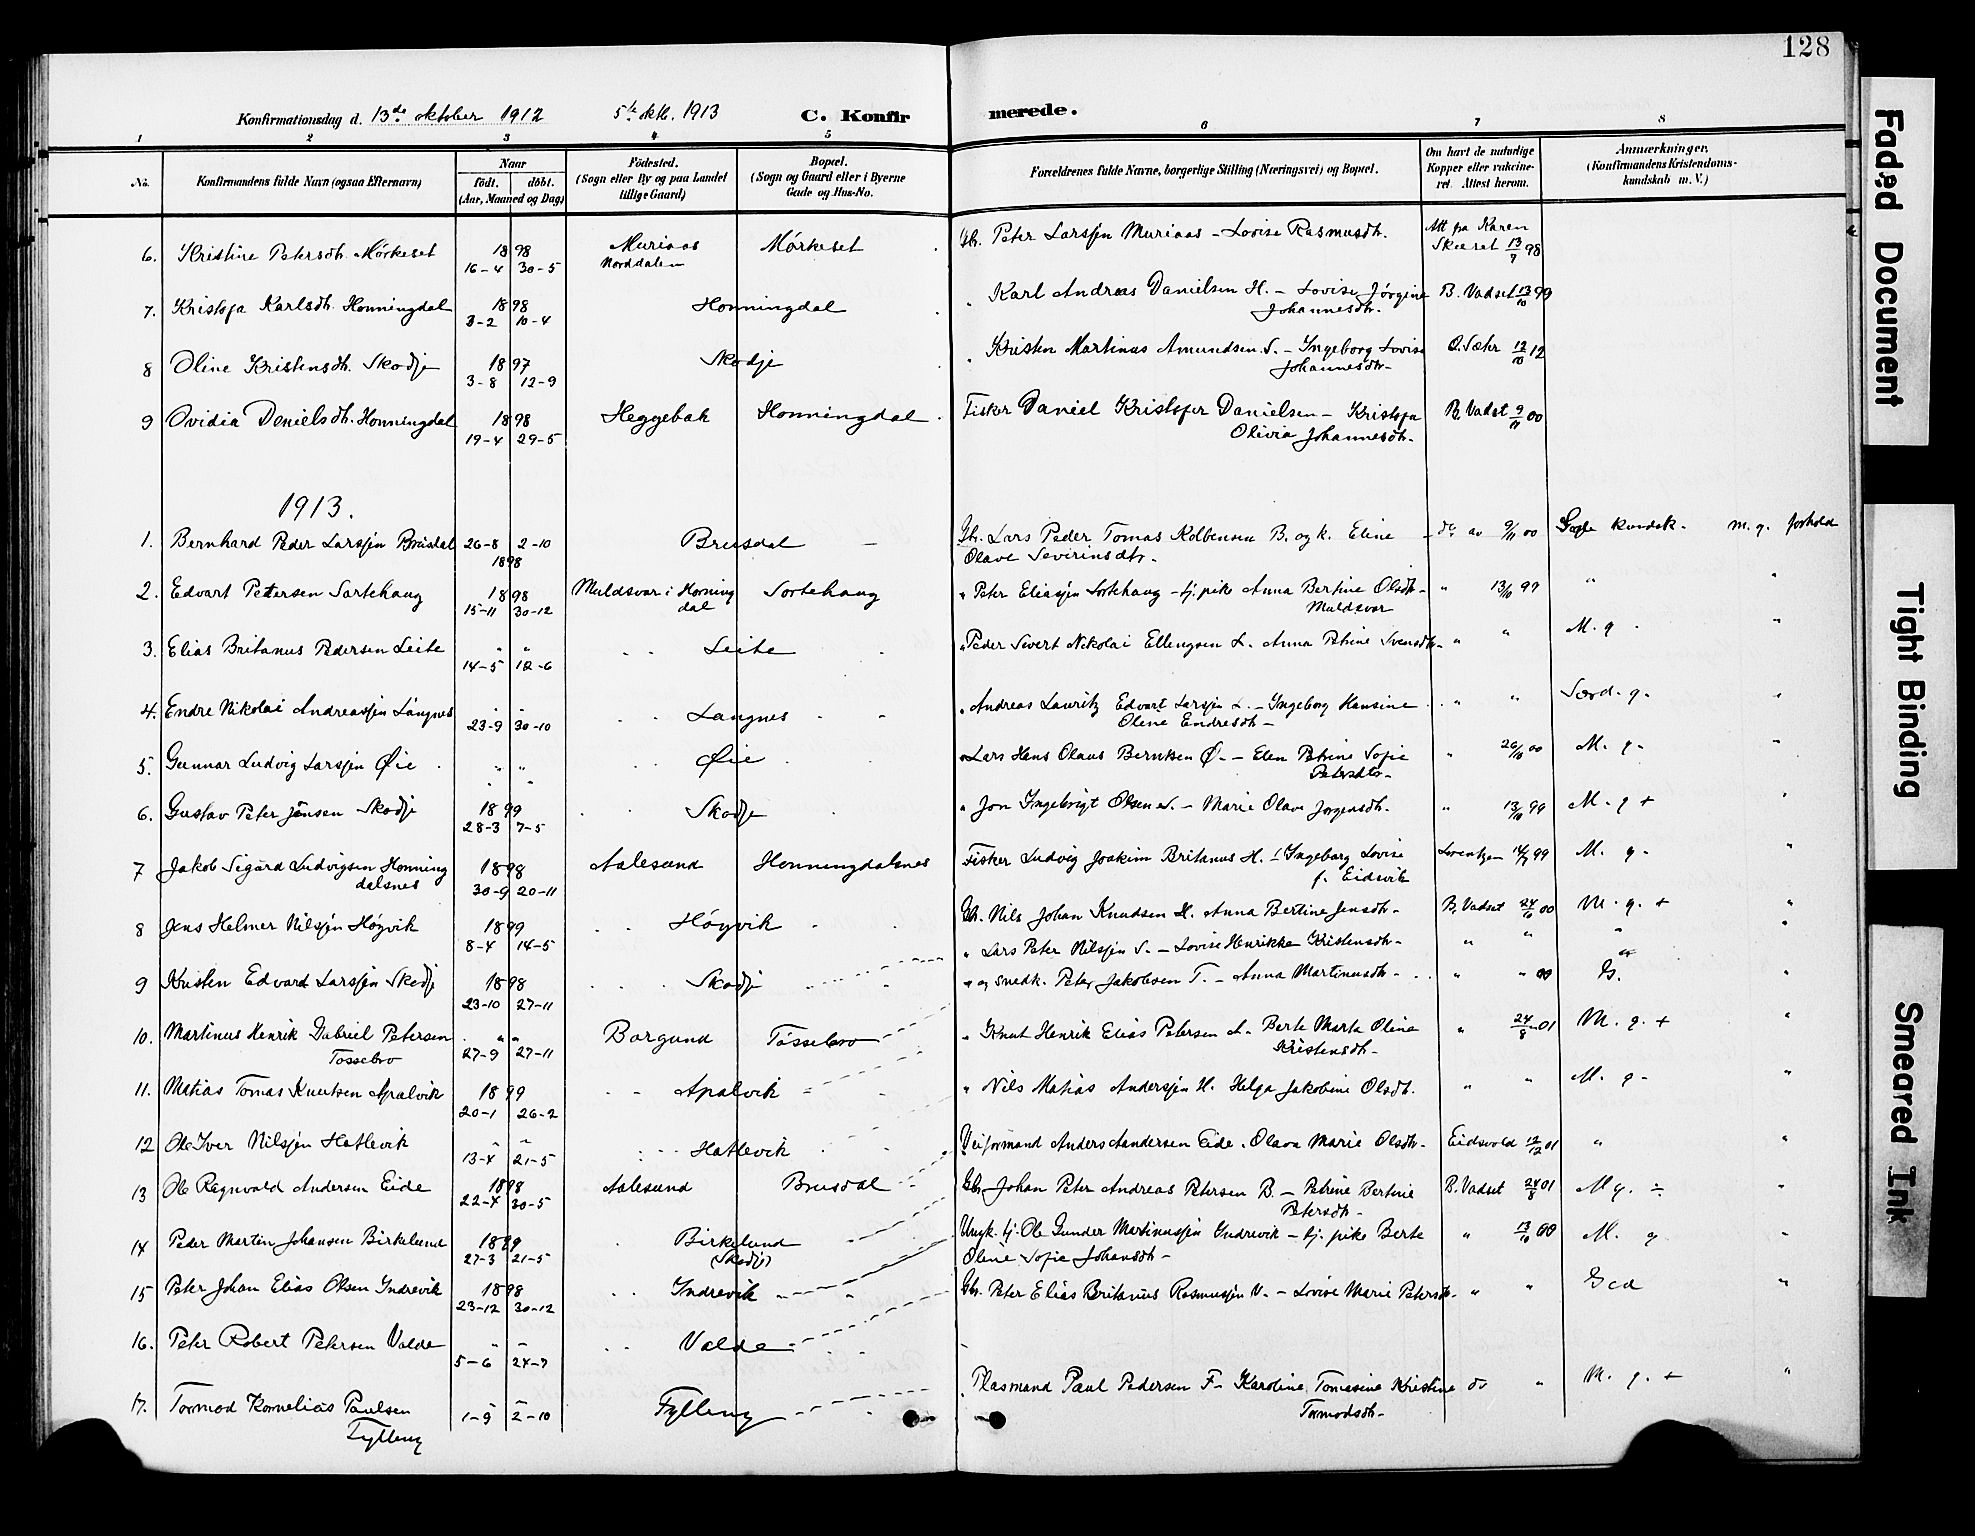 128
Konfirmationsdag d. 13de oktober 1912 5te okt. 1913 C. Konfir merede.
1 2 3 4 5 6 7 8
No. Konfirmandens fulde Navn (ogsaa Efternavn)
Naar
født. døbt.
(Aar, Maaned og Dag)
Fødested.
(Sogn eller By og paa Landet
tillige Gaard)
Bopæl.
(Sogn og Gaard eller i Byerne
Gade og Hus-No.
Forældrenes fulde Navne, borgerlige Stilling (Næringsvei) og Bopæl.
Om havt de naturlige
Kopper eller vakcine-
ret. Attest herom.
Anmærkninger.
(Konfirmandens Kristendoms-
kundskab m. V.)
6. Kristine Petersdtr. Mørkeset 1898 Muriaas Mørkeset Gbr. Peter Larssen Muriaas - Lovise Rasmusdtr. Att fra Karen
16-4 30-5 Norddalen Skeeret 13/7 98
7. Kristofa Karlsdtr. Honningdal 1898 Honningdal " Karl Andreas Danielsen H. - Lovise Jørgine B. Vadset 13/10 99
3-2 10-4 Johannesdtr.
8 Oline Kristensdtr. Skodje 1897 Skodje " Kristen Martinus Amundsen S. - Ingeborg Lovise O. Sæter 12/10 12
3-8 12-9 Johannesdtr-
9 Ovidia Danielsdtr. Honningdal 1898 Heggebak Honningdal Fisker Daniel Kristofer Danielsen - Kristofa B. Vadset 9/11 00
19-4 29-5 Olivia Johannesdtr-
1913.
1. Bernhard Peder Larssen Brusdal 26-8 2-10 Brusdal - Gbr. Lars Peder Tomas Kolbensen B. og k. Eline - do av 9/11 00 Gode kundsk. m. g. forhold
1898 Olave Severinsdtr-
2. Edvart Pettersen Sortehaug 1898 Muldsvor i Honning Sortehaug " Peter Eliassen Sortehaug - tj. pike Anna Bertine Olsdtr - " 13/10 99 " "
15-11 30-12 dal Muldsvor
3. Elias Britanus Pedersen Leite " " Leite " Peder Severt Nikolai Ellingsen L. Anna Petrine Svensdtr- " " M. g "
14-5 12-6
4. Endre Nikolai Andreassen Langnes " " Langnes " Andreas Lauritz Edvart Larssen L. - Ingeborg Hansine " " Særd. g. "
23-9 30-10 Olene Endresdtr-
5. Gunnar Ludvig Larssen Øie " " Øie " Lars Hans Olaus Berntsen Ø. - Elen Petrine Sofie " 26/10 00 M. g. "
Petersdtr-
6. Gustav Peter Jonsen Skodje 1899 Skodje " Jon Ingebrigt Olsen S. - Marie Olave Jørgensdtr. " 13/10 99 M. g + "
28-3 7-5
7 Jakob Sigurd Ludvigsen Honning 1898 Aalesund Honningdalsnes Fisker Ludvig Joakim Britanus H. - Ingeborg Lovise Lorentzen 14/9 99 M. g. "
dalsnes 30-9 20-11 f. Eidsvik
8 Jens Helmer Nilssen Høgvik 1899 Høgvik Gbr. Nils Johan Knudsen H. Anna Bertine Jensdtr- B. Vadset 24/10 00 M. g. + "
8-4 14-5 " Lars Peter Nilssen S. - Lovise Henrikke Kristensdtr- " " " "
9 Kristen Edvard Larssen Skodje 1898 Skodje " og snedk. Peter Jakobsen T. - Anna Martinusdtr- " " 00 G. "
23-10 27-11
10. Martinus Henrik Gabriel Petersen " " Borgund Tøssebro " Knut Henrik Elias Petersen A- Berte Marta Oline " 24/8 01 M. g. + "
Tøssebro 27-9 27-11 Kristensdtr-
11. Matias Tomas Knutsen Apalvik 1899 Apalvik " Nils Matias Anderssen H. Helga Jakobine Olsdtr. " " M. g- "
20-1 26-2
12 Ole Iver Nilssen Hatlevik - - Hatlevik Veiformand Anders Andersen Eide. Olava Marie Olsdtr- Eidsvold 12/12 01 " "
13-4 21-5
13 Ole Ragnvald Andersen Eide 1898 Aalesund Brusdal Gbr. Johan Peter Andreas Petersen B. - Petrine Bertine B. Vadset 24/8 01 M g. ÷ "
22-4 30-5 Petersdtr-
14 Peder Martin Johansen Birkelund 1899 Birkelund Ungk. tj. Ole Gunder Martinussen Indrevik - tj. pike Berte " 13/10 00 M. g "
27-3 21-5 (Skodje) Oline Sofie Johansdtr-
15 Peter Johan Elias Olsen Indrevik 1898 Indrevik Gbr. Peter Elias Britanus Rasmussen V. - Lovise Marie Petersdtr- " " Gcd "
23-12 30-12
16. Peter Robert Petersen Valde " - Valde
5-6 24-7
17. Tormod Kornelius Paulsen - - Fylling Plasmand Paul Pedersen F- Karoline Tomasine Kristine do " M. g. + "
Fylling 1-9 2-10 Tormodsdtr-
Faded Document
Tight Binding
Smeared Ink